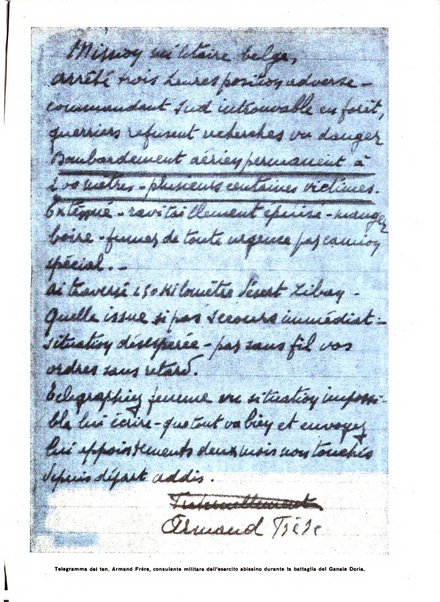 Mission militaire belge,
arrêté trois heures position adverse -
commandant sud introuvable en forêt,
guerriers refusent recherches vu danger
Bombardement aérien permanent à
200 mètres - plusieurs centaines victimes.
Exténué - ravitaillement épuisé - manger
boire - fumer de toute urgence par camion
spécial. -
ai traversé 150 kilomètre désert
Quelle issue si pas secours immédiat -
situation désespérée - par sans fil vos
ordres sans retard.
femme vu situation impossi-
ble lui écrire - que tout va bien et envoyez
lui appointements deux mois non touchés
depuis départ addis.
Fraternellement
Armand Frère
Telegramma del ten. Armand Frère, consulente militare dell'esercito abissino durante la battaglia del Ganale Doria.